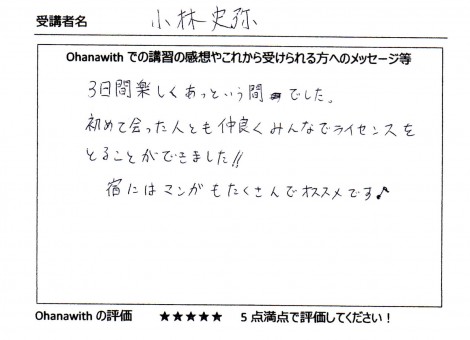 受講者名 小林史弥
Ohanawith での講習の感想やこれから受けられる方へのメッセージ等
3日間楽しくあっという間でした。
初めて会った人とも仲良くみんなでライセンスを
とることができました!!
宿にはマンガもたくさんでオススメです♪
Ohanawith の評価 ★★★★★ 5 点満点で評価してください！